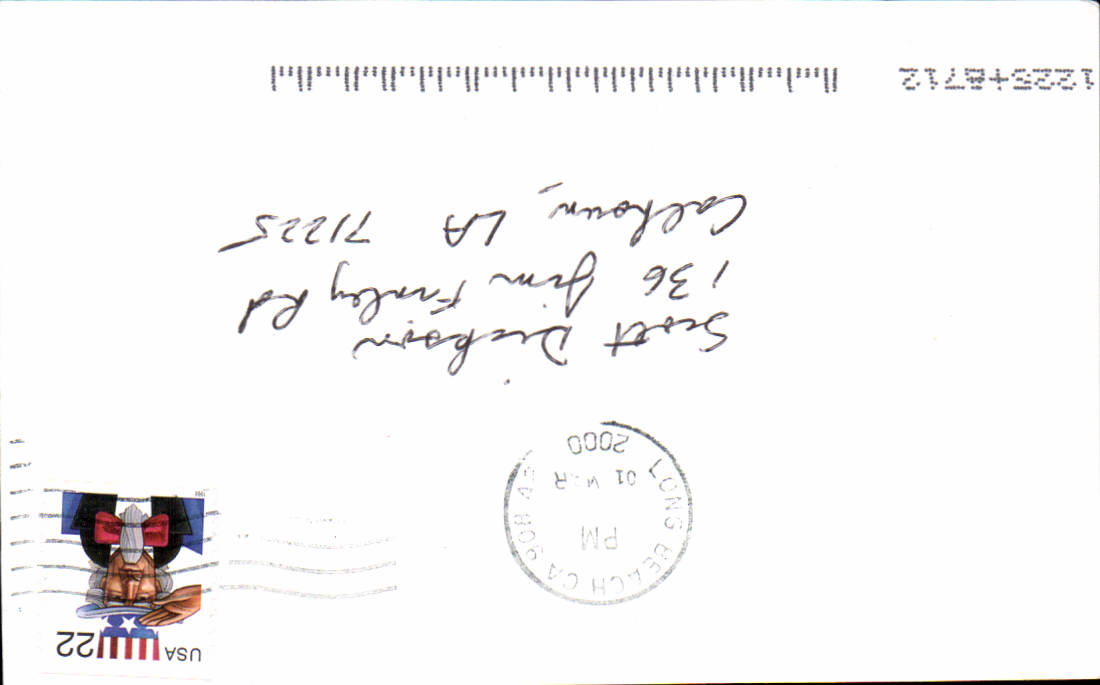 USA 22
LONG BEACH CA 908
PM
01 MAR
2000
Scott Dickson
136 Jim Finley Rd
Calhoun, LA 71225
1225+8712